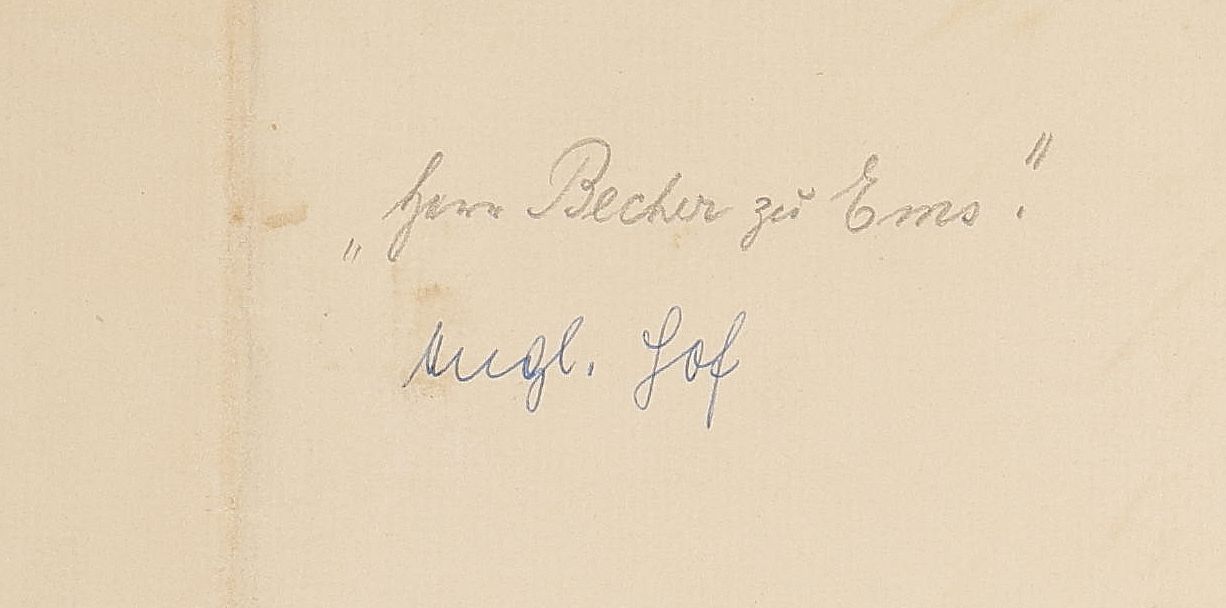 „Herr Becher zu Ems."
Engl. Hof